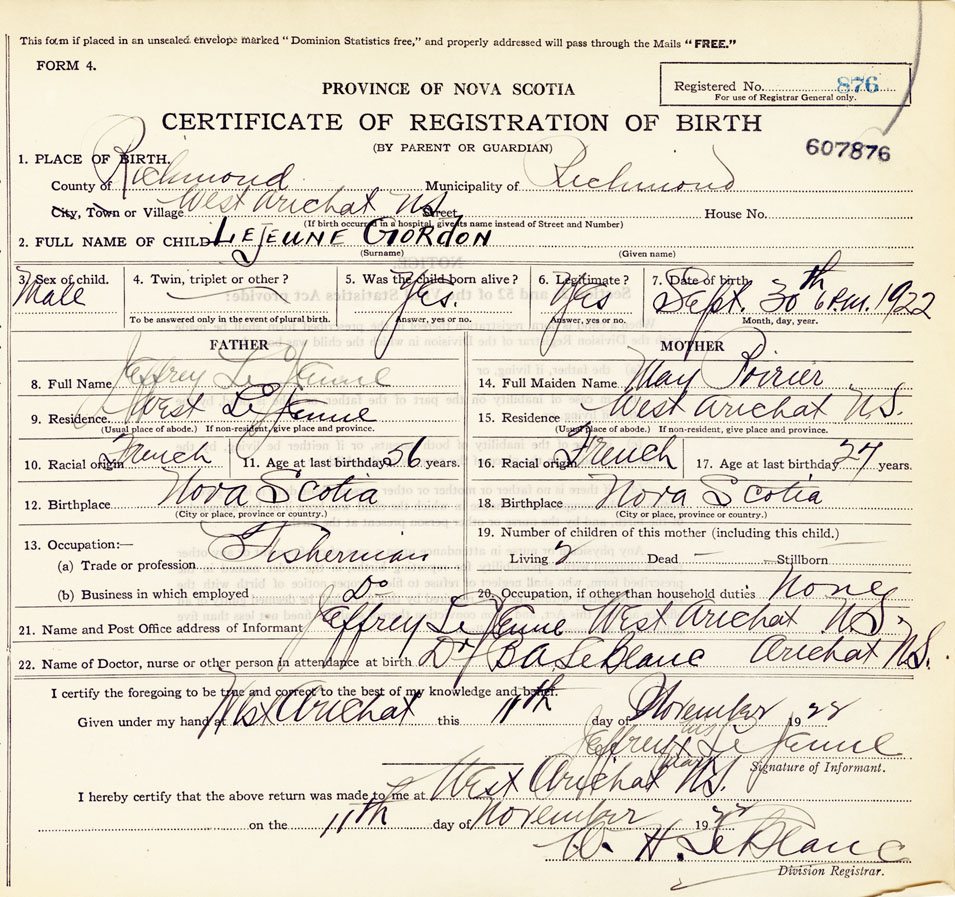 This form if placed in an unsealed envelope marked "Dominion Statistics free," and properly addressed will pass through the Mails "FREE."
FORM 4.
Registered No. 876
For use of Registrar General only.
PROVINCE OF NOVA SCOTIA
CERTIFICATE OF REGISTRATION OF BIRTH
(BY PARENT OR GUARDIAN)
607876
1. PLACE OF BIRTH.
County of Richmond Municipality of Richmond
City, Town or Village West Arichat N.S. Street House No.
(If birth occurred in a hospital, give its name instead of Street and Number)
2. FULL NAME OF CHILD LeJeune Gordon
(Surname) (Given name)
3. Sex of child. Male 4. Twin, triplet or other? 5. Was the child born alive? Yes. 6. Legitimate? Yes 7. Date of birth Sept. 30th 6 P.M. 1922
To be answered only in the event of plural birth. Answer, yes or no. Answer, yes or no. Month, day, year.
FATHER MOTHER
8. Full Name Jeffrey LeJeune 14. Full Maiden Name May Poirier
9. Residence West LeJeune 15. Residence West Arichat N.S.
(Usual place of abode.) If non-resident, give place and province. (Usual place of abode.) If non-resident, give place and province.
10. Racial origin French 11. Age at last birthday 56 years. 16. Racial origin French 17. Age at last birthday 27 years.
12. Birthplace Nova Scotia 18. Birthplace Nova Scotia
(City or place, province or country.) (City or place, province or country.)
13. Occupation:— 19. Number of children of this mother (including this child.)
(a) Trade or profession Fisherman Living 2 Dead — Stillborn
(b) Business in which employed Do 20. Occupation, if other than household duties None
21. Name and Post Office address of Informant Jeffrey LeJeune West Arichat N.S.
22. Name of Doctor, nurse or other person in attendance at birth Dr B.A. LeBlanc Arichat N.S.
I certify the foregoing to be true and correct to the best of my knowledge and belief.
Given under my hand at West Arichat this 11th day of November 1922
Jeffrey his x mark LeJeune
Signature of Informant.
I hereby certify that the above return was made to me at West Arichat N.S.
on the 11th day of November 1922
W. H. LeBlanc
Division Registrar.